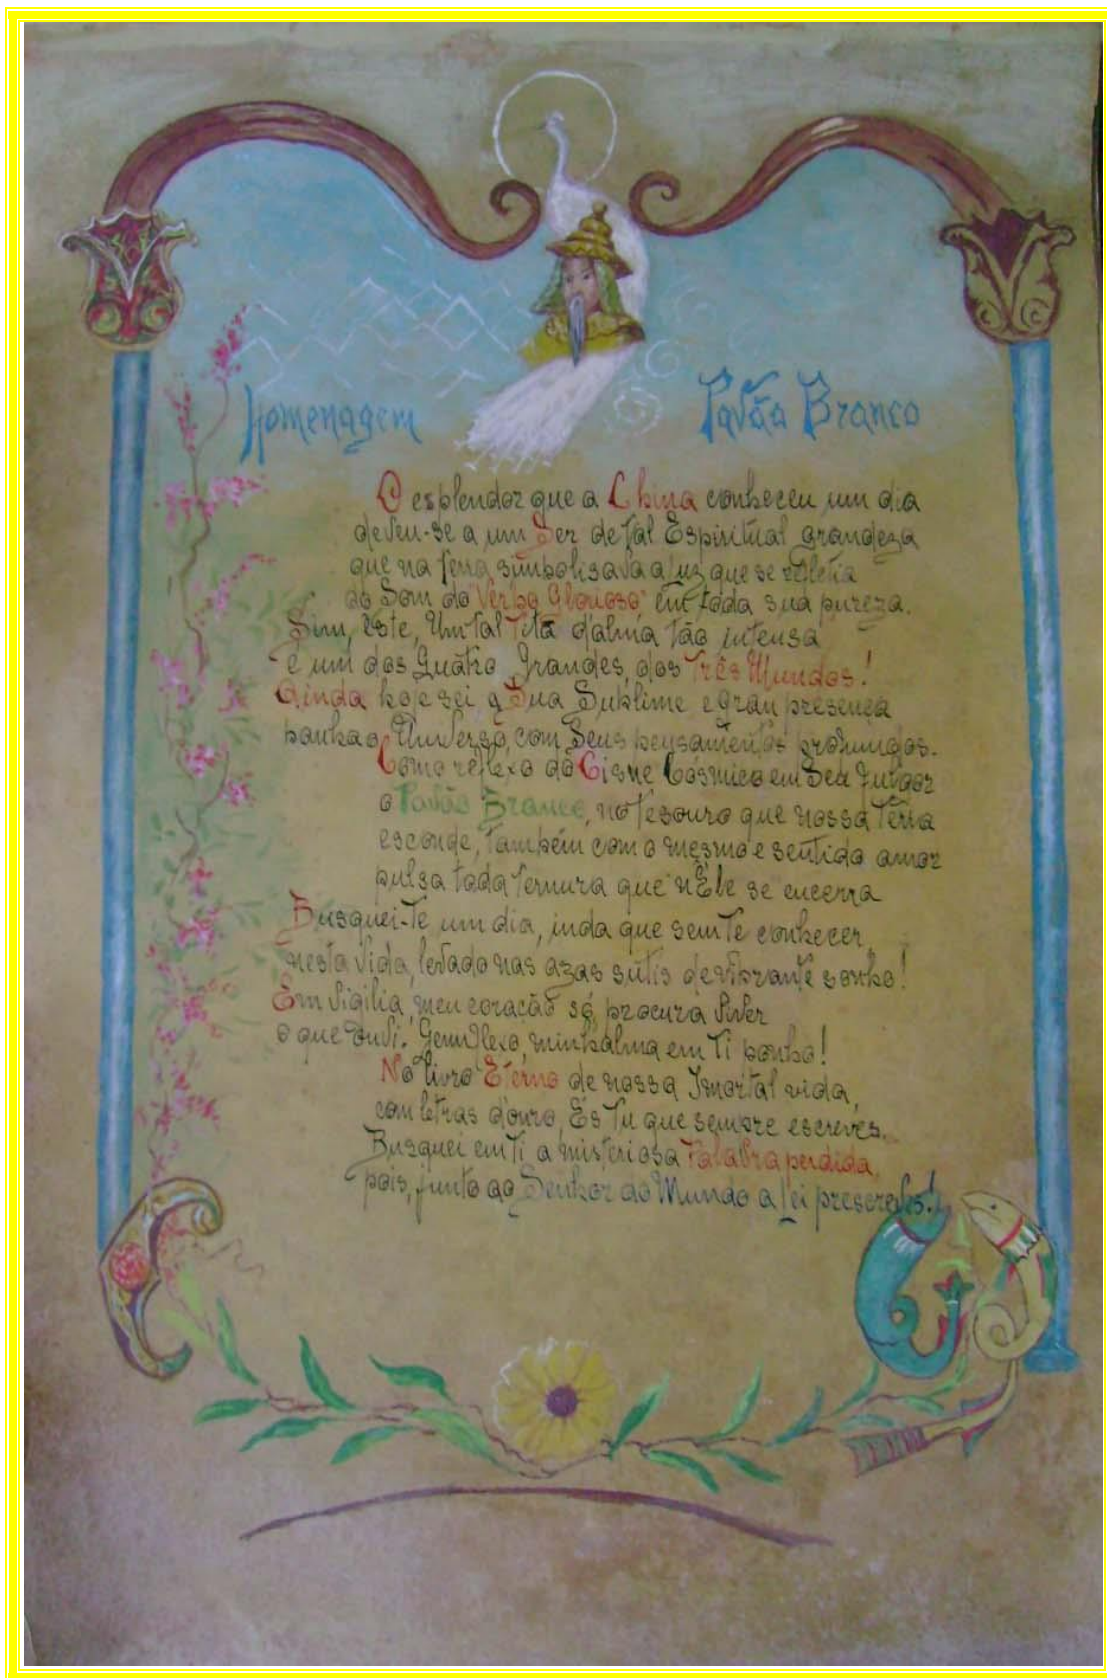 Homenagem Pavão Branco
O esplendor que a China conheceu um dia
deveu-se a um Ser de tal Espiritual grandeza
que na terra simbolisava a Luz que se refletia
do Som do "Verbo Glorioso" em toda sua pureza.
Sim, Este, Um tal Titã d'alma tão intensa
é um dos Quatro Grandes, dos Três Mundos!
Ainda hoje sei q Sua Sublime e gran presença
banha o Universo, com Seus pensamentos profundos.
Como reflexo do Cisne Cósmico em Seu fulgor
o Pavão Branco, no Tesouro que nossa Terra
esconde, Também com o mesmo e sentido amor
pulsa toda Ternura que n'Ele se encerra
Busquei-Te um dia, inda que sem Te conhecer,
nesta vida, levado nas azas sutis de vibrante sonho!
Em vigilia, meu coração só procura viver
o que ouvi. Genuflexo, minhalma em Ti ponho!
No livro Eterno de nossa Imortal vida,
com letras d'ouro, És Tu que sempre escreves.
Busquei em Ti a misteriosa Palavra perdida,
pois, junto ao Senhor do Mundo a Lei prescreves!